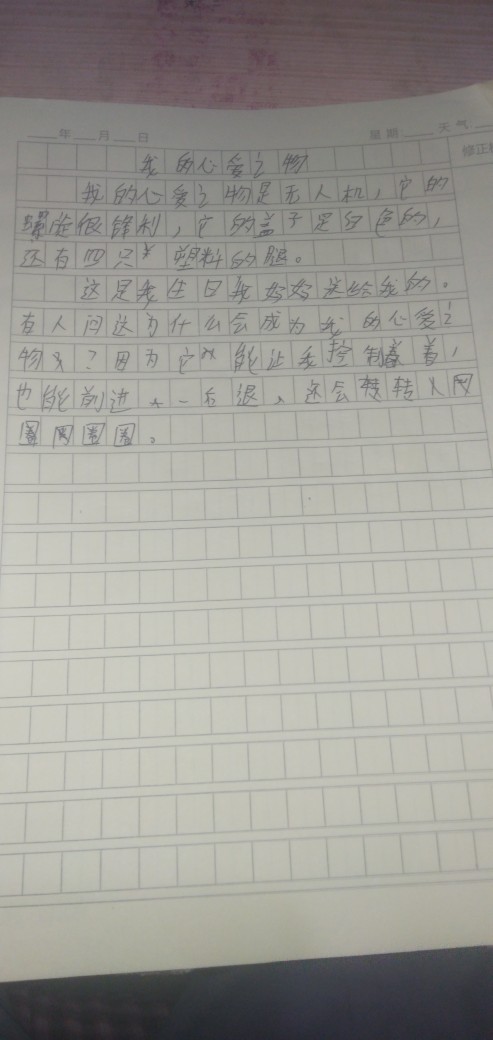 年 月 日 星期 天气
修正
我的心爱之物
我的心爱之物是无人机，它的
螺旋很锋利，它的盖子是白色的，
还有四只塑料的腿。
这是我生日我好好送给我的。
有人问这为什么会成为我的心爱之
物？因为它能让我控制着，
也能前进、后退、还会转
圈圈圈。